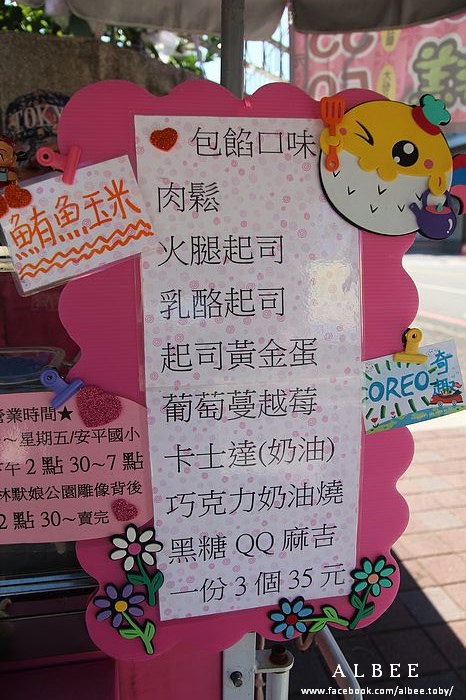 包餡口味
肉鬆
火腿起司
乳酪起司
起司黃金蛋
葡萄蔓越莓
卡士達(奶油)
巧克力奶油燒
黑糖 QQ 麻吉
一份 3 個 35 元
鮪魚玉米
OREO奇趣
營業時間★
~星期五/安平國小
午 2 點 30~7 點
林默娘公園雕像背後
2 點 30~賣完
TOKYO
ALBEE
www.facebook.com/albee.toby/